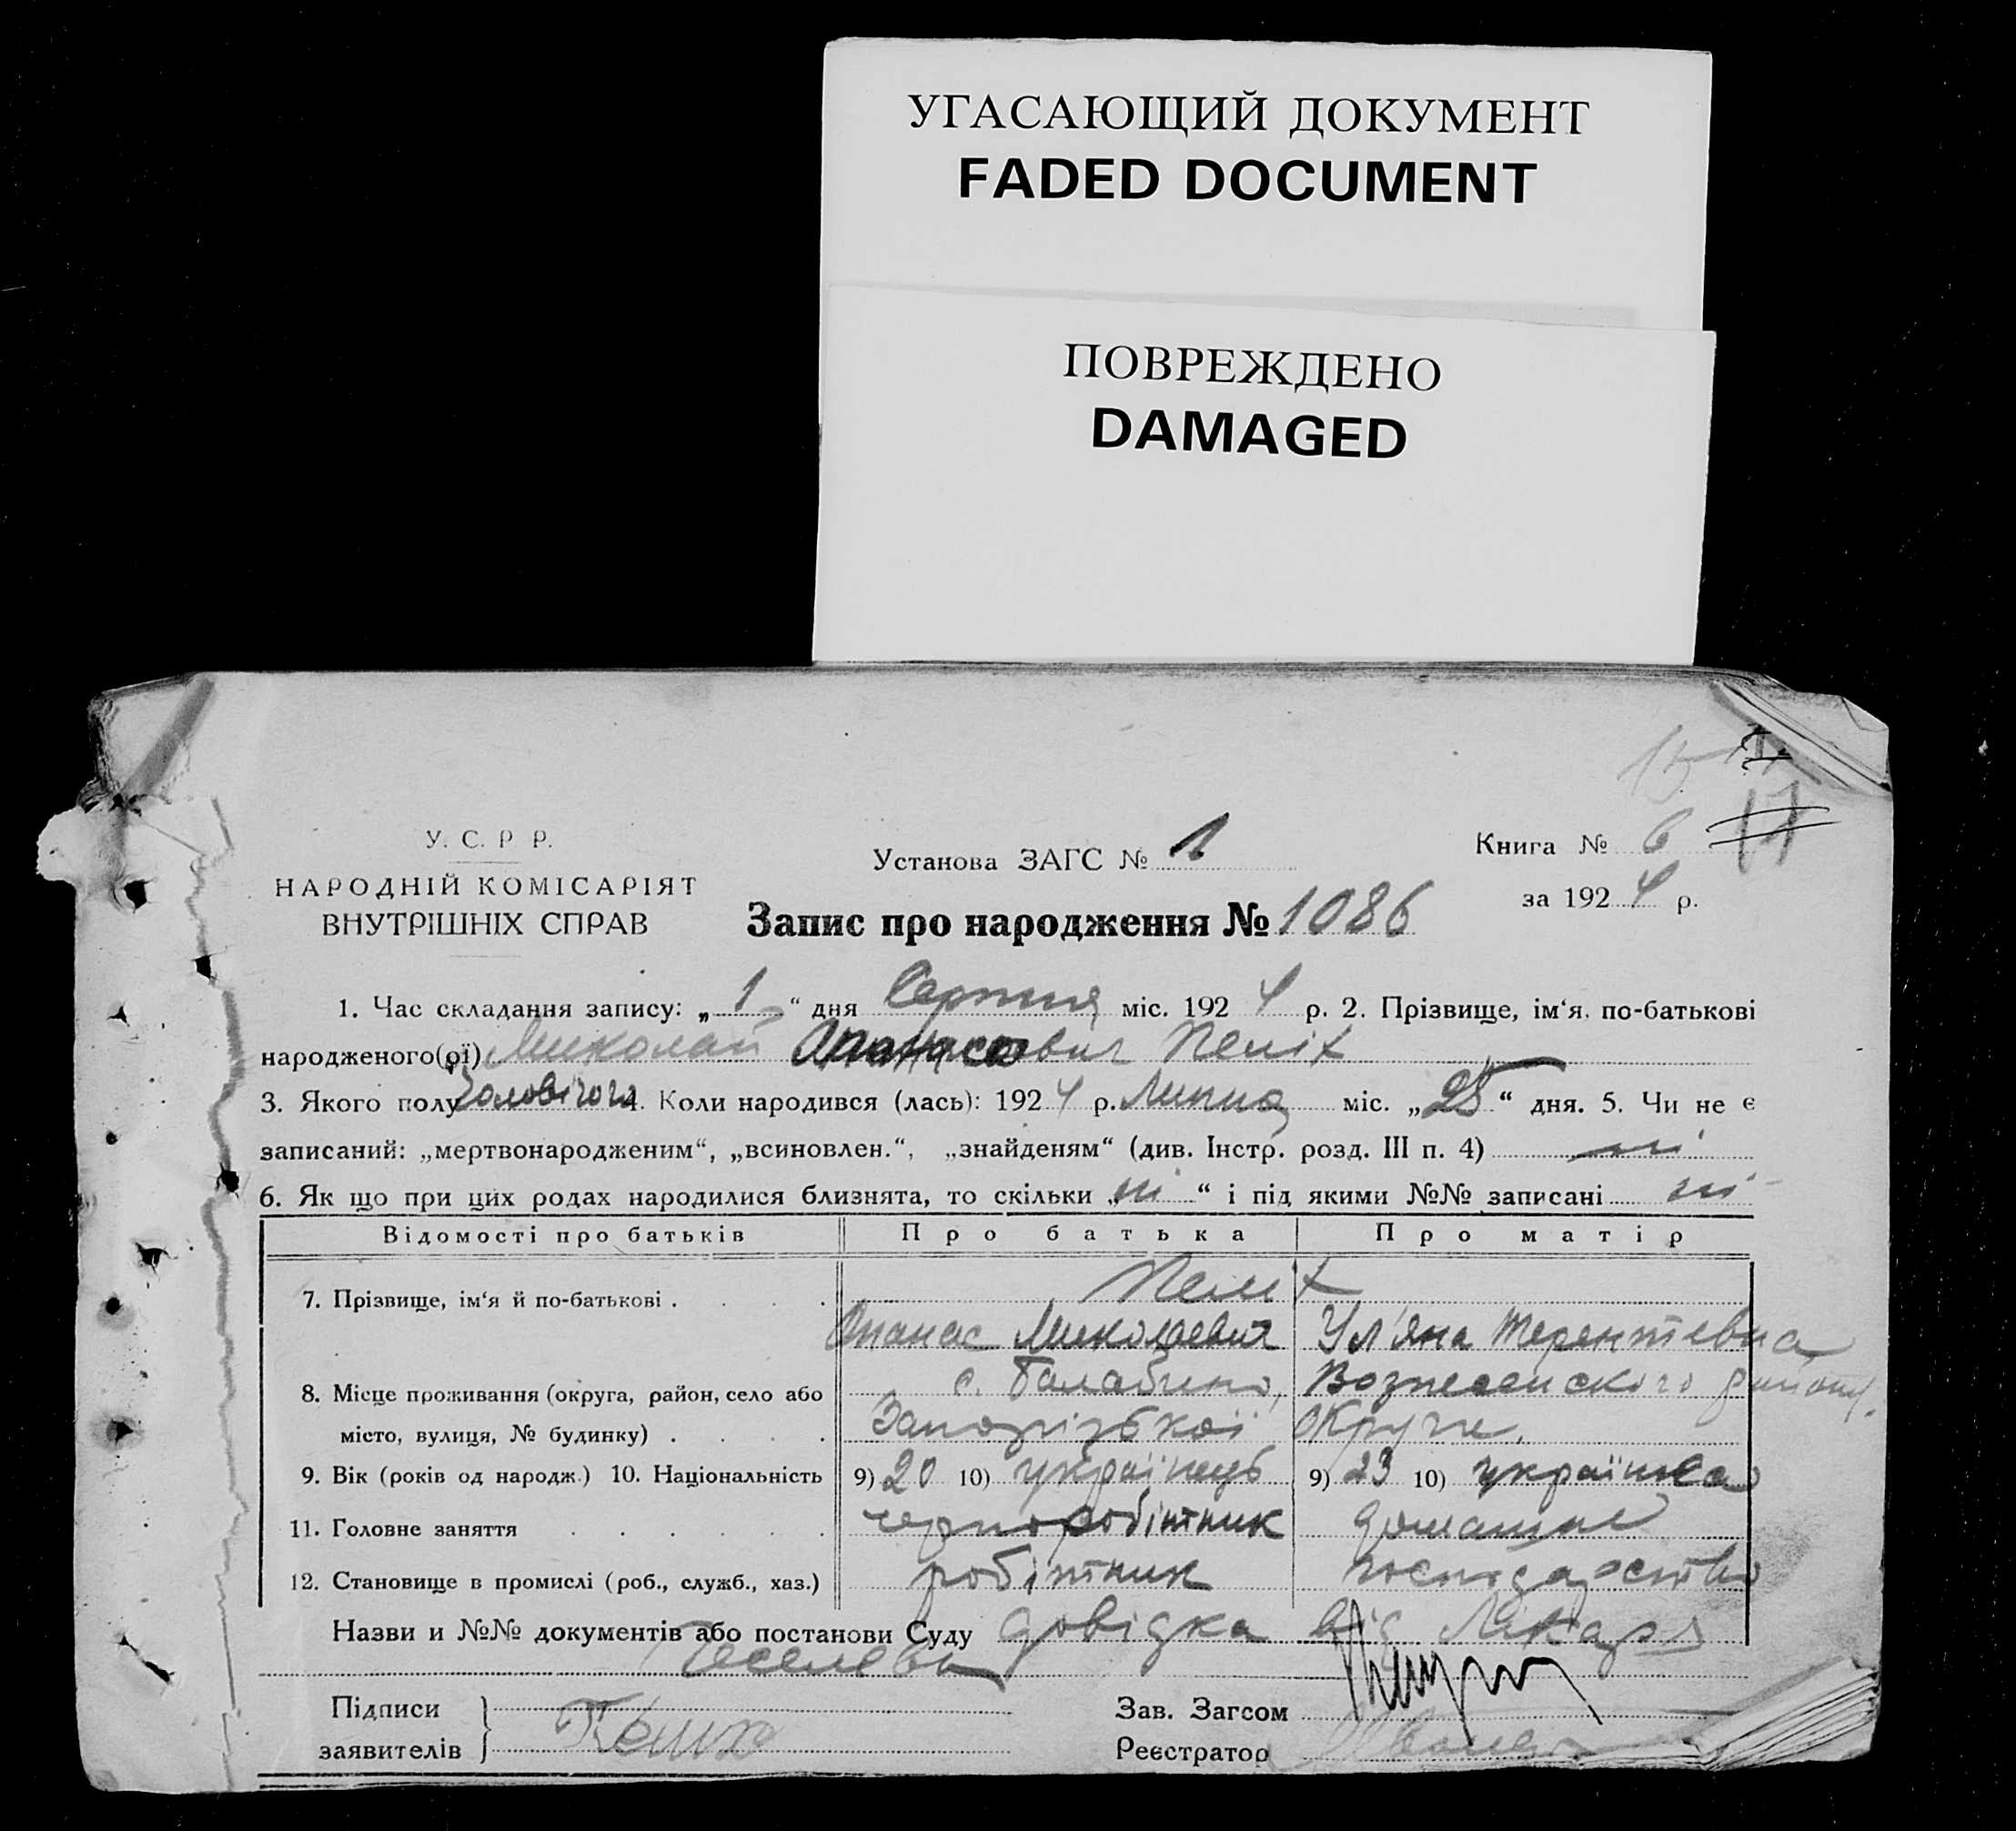 УГАСАЮЩИЙ ДОКУМЕНТ
FADED DOCUMENT
ПОВРЕЖДЕНО
DAMAGED
У. С. Р Р.
НАРОДНІЙ КОМІСАРІЯТ
ВНУТРІШНІХ СПРАВ
Установа ЗАГС № 1
Книга № 6 17
за 1924 р.
Запис про народження № 1086
1. Час складання запису: „ 1 “ дня Серпня міс. 1924 р. 2. Прізвище, ім‘я. по-батькові
народженого(ої) Миколай Опанасович Пеліх
3. Якого полу Чоловічого 4. Коли народився (лась): 1924 р. Липня міс. „ 25 “ дня. 5. Чи не є
записаний: „мертвонародженим“, „всиновлен.“, „знайденям“ (див. Інстр. розд. III п. 4) ні
6. Як що при цих родах народилися близнята, то скільки „ ні “ і під якими №№ записані ні
Відомості про батьків Про батька Про матір
7. Прізвище, ім‘я й по-батькові . . . . Пелих
Опанас Миколаевич Ул'яна Терентевна
8. Місце проживання (округа, район, село або с. Балабино, Вознесенского району
місто, вулиця, № будинку) . . . . Запорізької Округи.
9. Вік (років од народж.) 10. Національність 9) 20 10) українець 9) 23 10) українка
11. Головне заняття . . . . . . чорноробітник домашне
12. Становище в промислі (роб., служб., хаз.) робітник господарство
Назви и №№ документів або постанови Суду довідка від Лікаря
Підписи
заявителів } Пелих
Зав. Загсом
Реєстратор